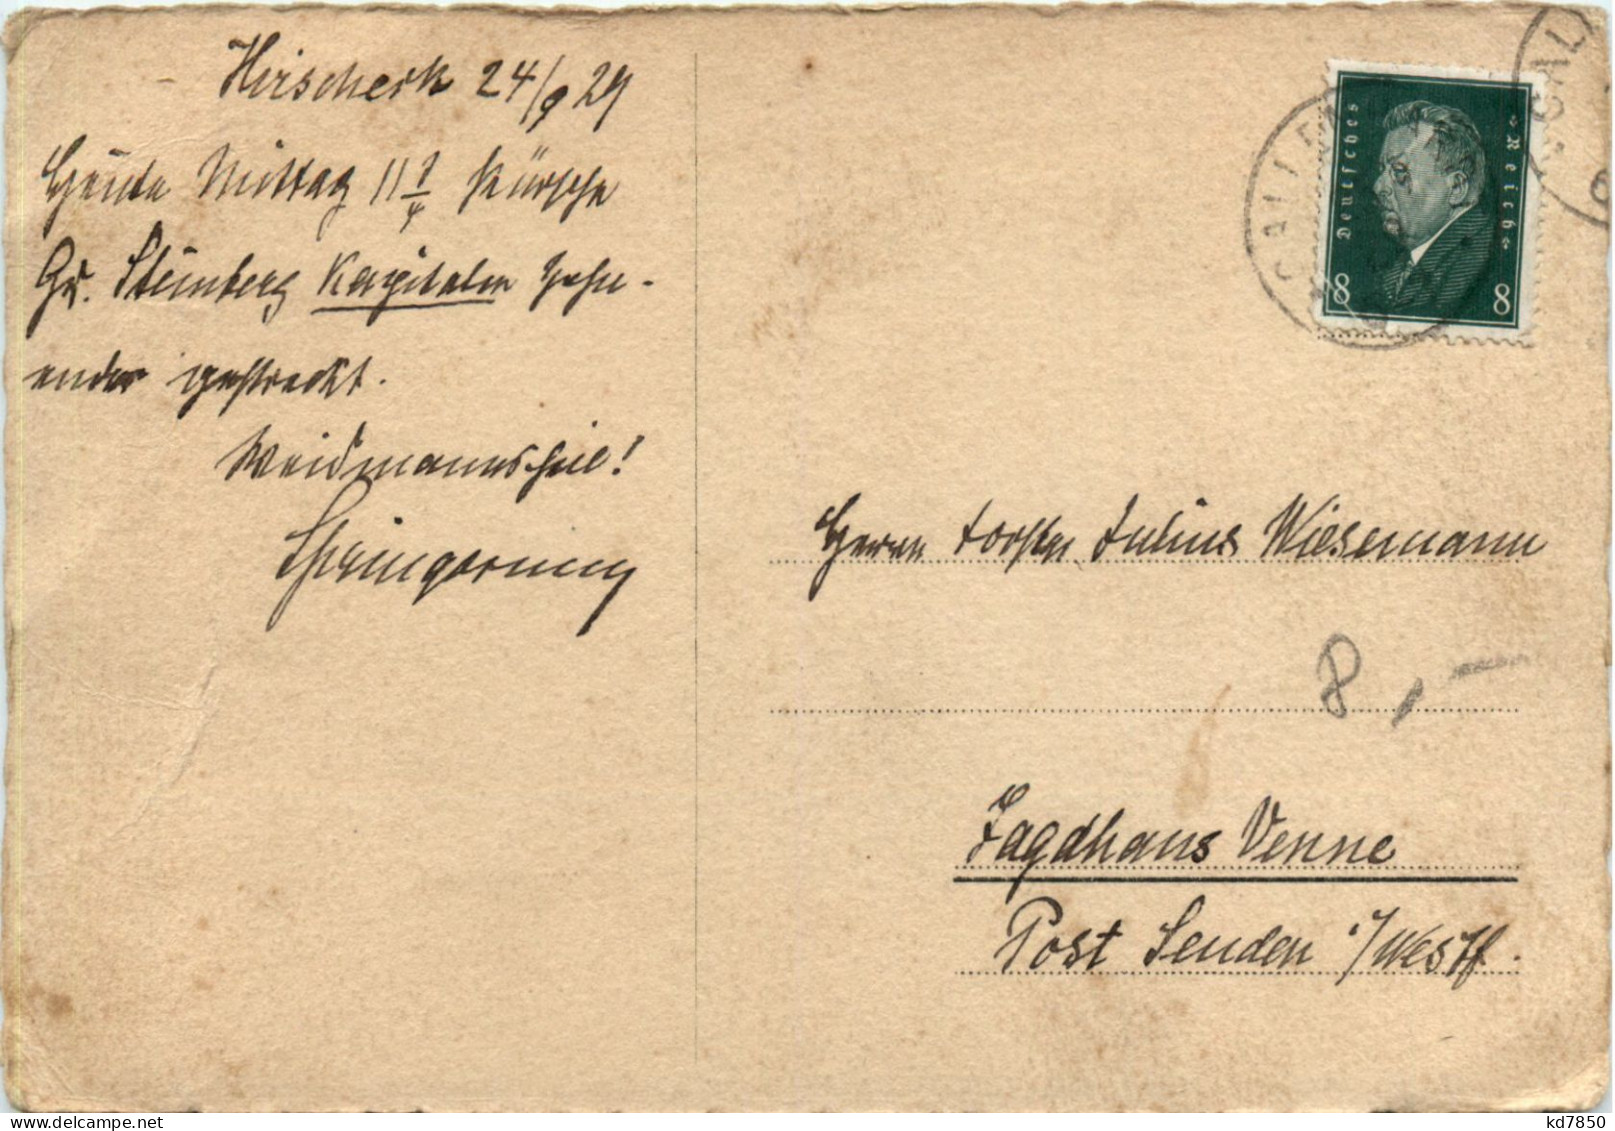 Hirscheck 24/9 29
Heute Mittag 11 1/4 Kürschn
Gr. Steinberg Kapitalen Zehn-
ender gestreckt.
Weidmannsheil!
Deutsches
»Reich«
8 8
CALLEN
CAL
Herrn Förster Julius Wiesemann
8,-
Jagdhaus Venne
Post Senden i/Westf.
kd7850